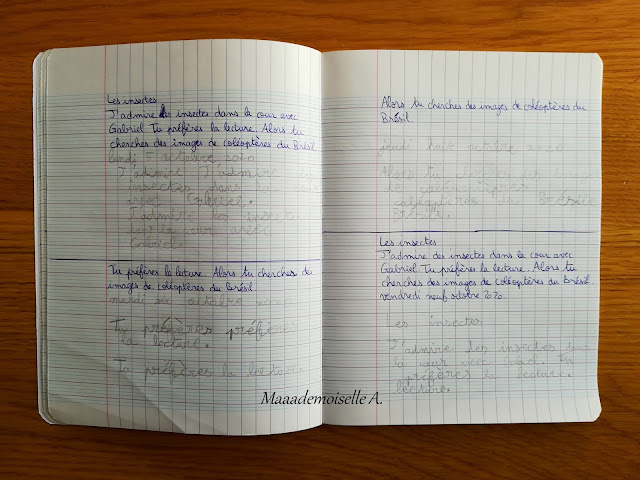 Les insectes
J'admire des insectes dans la cour avec
Gabriel. Tu préfères la lecture. Alors tu
cherches des images de coléoptères du Brésil.
lundi octobre 2020
J'admire J'admire
insectes dans la
avec Gabriel.
J'admire les insectes
avec
Gabriel
Tu préfères la lecture. Alors tu cherches des
images de coléoptères du Brésil.
mardi six octobre
Tu préfères préfères
la lecture.
Tu préfères la lecture
Alors tu cherches des images de coléoptères du
Brésil.
jeudi huit octobre 2020
Alors tu
de
coléoptères du Brésil
Brésil.
Les insectes
J'admire des insectes dans la cour avec
Gabriel. Tu préfères la lecture. Alors tu
cherches des images de coléoptères du Brésil.
vendredi neuf octobre 2020.
Les insectes
J'admire les insectes
la cour avec Tu
préfères la lecture.
lecture.
Maaademoiselle A.